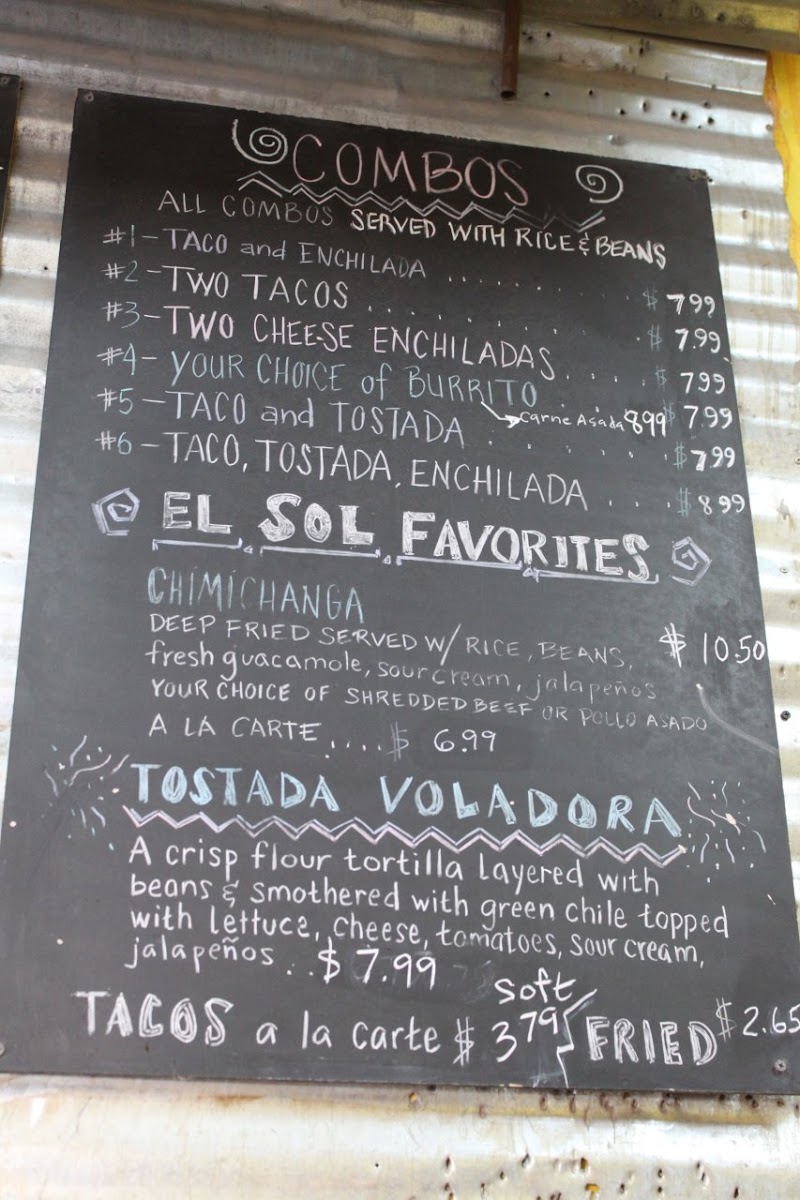 COMBOS
ALL COMBOS SERVED WITH RICE & BEANS
#1 - TACO and ENCHILADA ........ $ 7.99
#2 - TWO TACOS ........ $ 7.99
#3 - TWO CHEESE ENCHILADAS .... $ 7.99
#4 - YOUR CHOICE of BURRITO .... $ 7.99
Carne Asada 8.99
#5 - TACO and TOSTADA ..... $ 7.99
#6 - TACO, TOSTADA, ENCHILADA .... $ 8.99
EL SOL FAVORITES
CHIMICHANGA
DEEP FRIED SERVED W/ RICE, BEANS, $ 10.50
fresh guacamole, sour cream, jalapeños
YOUR CHOICE OF SHREDDED BEEF OR POLLO ASADO
A LA CARTE .... $ 6.99
TOSTADA VOLADORA
A crisp flour tortilla layered with
beans & smothered with green chile topped
with lettuce, cheese, tomatoes, sour cream,
jalapeños .. $ 7.99
TACOS a la carte $ 3.79 soft FRIED $ 2.65